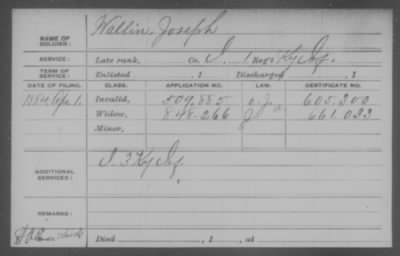 NAME OF SOLDIER: Wallin, Joseph
SERVICE: Late rank, Co. I, 1 Reg't Ky Inf.
TERM OF SERVICE: Enlisted , 1 Discharged , 1
DATE OF FILING. CLASS. APPLICATION NO. LAW. CERTIFICATE NO.
1884 Apr 1. Invalid, 509.885 605.300
Widow, 848.266 661.033
Minor,
ADDITIONAL SERVICES: I. 3 Ky Inf.
REMARKS:
Died , 1 , at